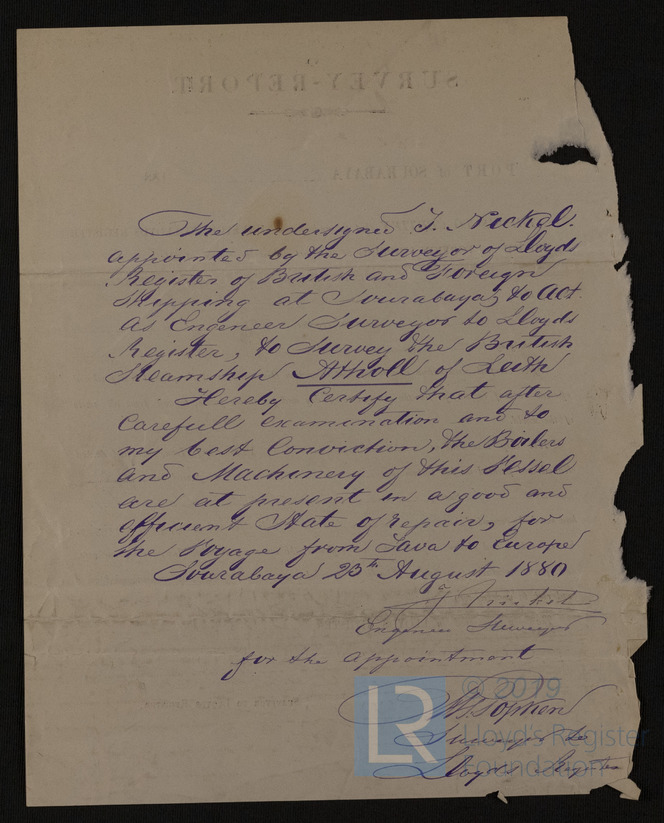 The undersigned J. Nickel.
appointed by the Surveyor of Lloyds
Register of British and Foreign
Shipping at Sourabaya, to Act
as Engeneer Surveyor to Lloyds
Register, to Survey the British
Steamship Atholl of Leith
Hereby Certify that after
Carefull examination and to
my best Conviction, the Boilers
and Machinery of this Vessel
are at present in a good and
efficient State of repair, for
the Voyage from Java to Europe
Sourabaya 23th August 1880
J Nickel
Engeneer Surveyor
for the appointment
Surveyor to
Lloyds Register
SURVEY-REPORT
PORT OF SOURABAYA
LR
© 2019
Lloyd's Register
Foundation